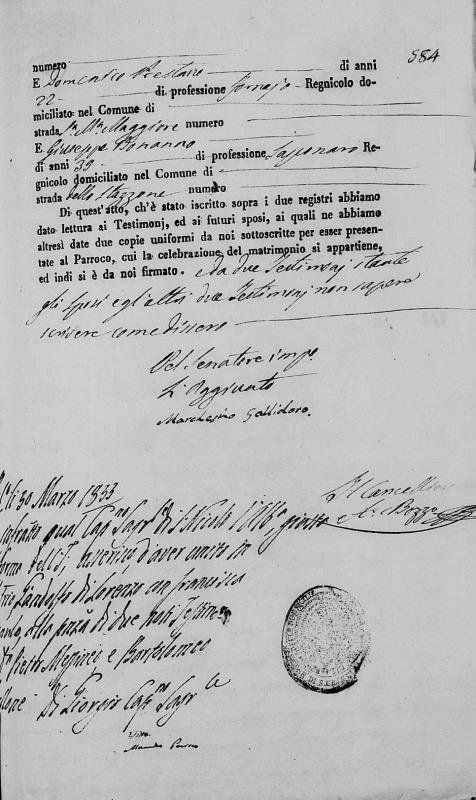 584
numero
E Domenico Prestano di anni
22 di professione fornajo Regnicolo do-
miciliato nel Comune di
strada S.ª M.ª Maggiore numero
E Giuseppe Bonanno
di anni 39 di professione Saponaro Re-
gnicolo domiciliato nel Comune di
strada dello Stazzone numero
Di quest'atto, ch'è stato iscritto sopra i due registri abbiamo
dato lettura ai Testimonj, ed ai futuri sposi, ai quali ne abbiamo
altresì date due copie uniformi da noi sottoscritte per esser presen-
tate al Parroco, cui la celebrazione del matrimonio si appartiene,
ed indi si è da noi firmato. e da due Testimonj stante
gli sposi e gli altri due Testimonj non sapere
scrivere come dissero
Pel Senatore imp.
L'Aggiunto
Marchesino Gallidoro.
li 30 Marzo 1833
Il Cancelliere
infratto qual Cap.no Sagr.le di S. Nicolò
forma dell' aver unito in
Gandolfo di Lorenzo con Francesca
alla pnza di due noti Testim
Pietro e Bartolomeo
Di Giorgio Cap.no Sagr.le